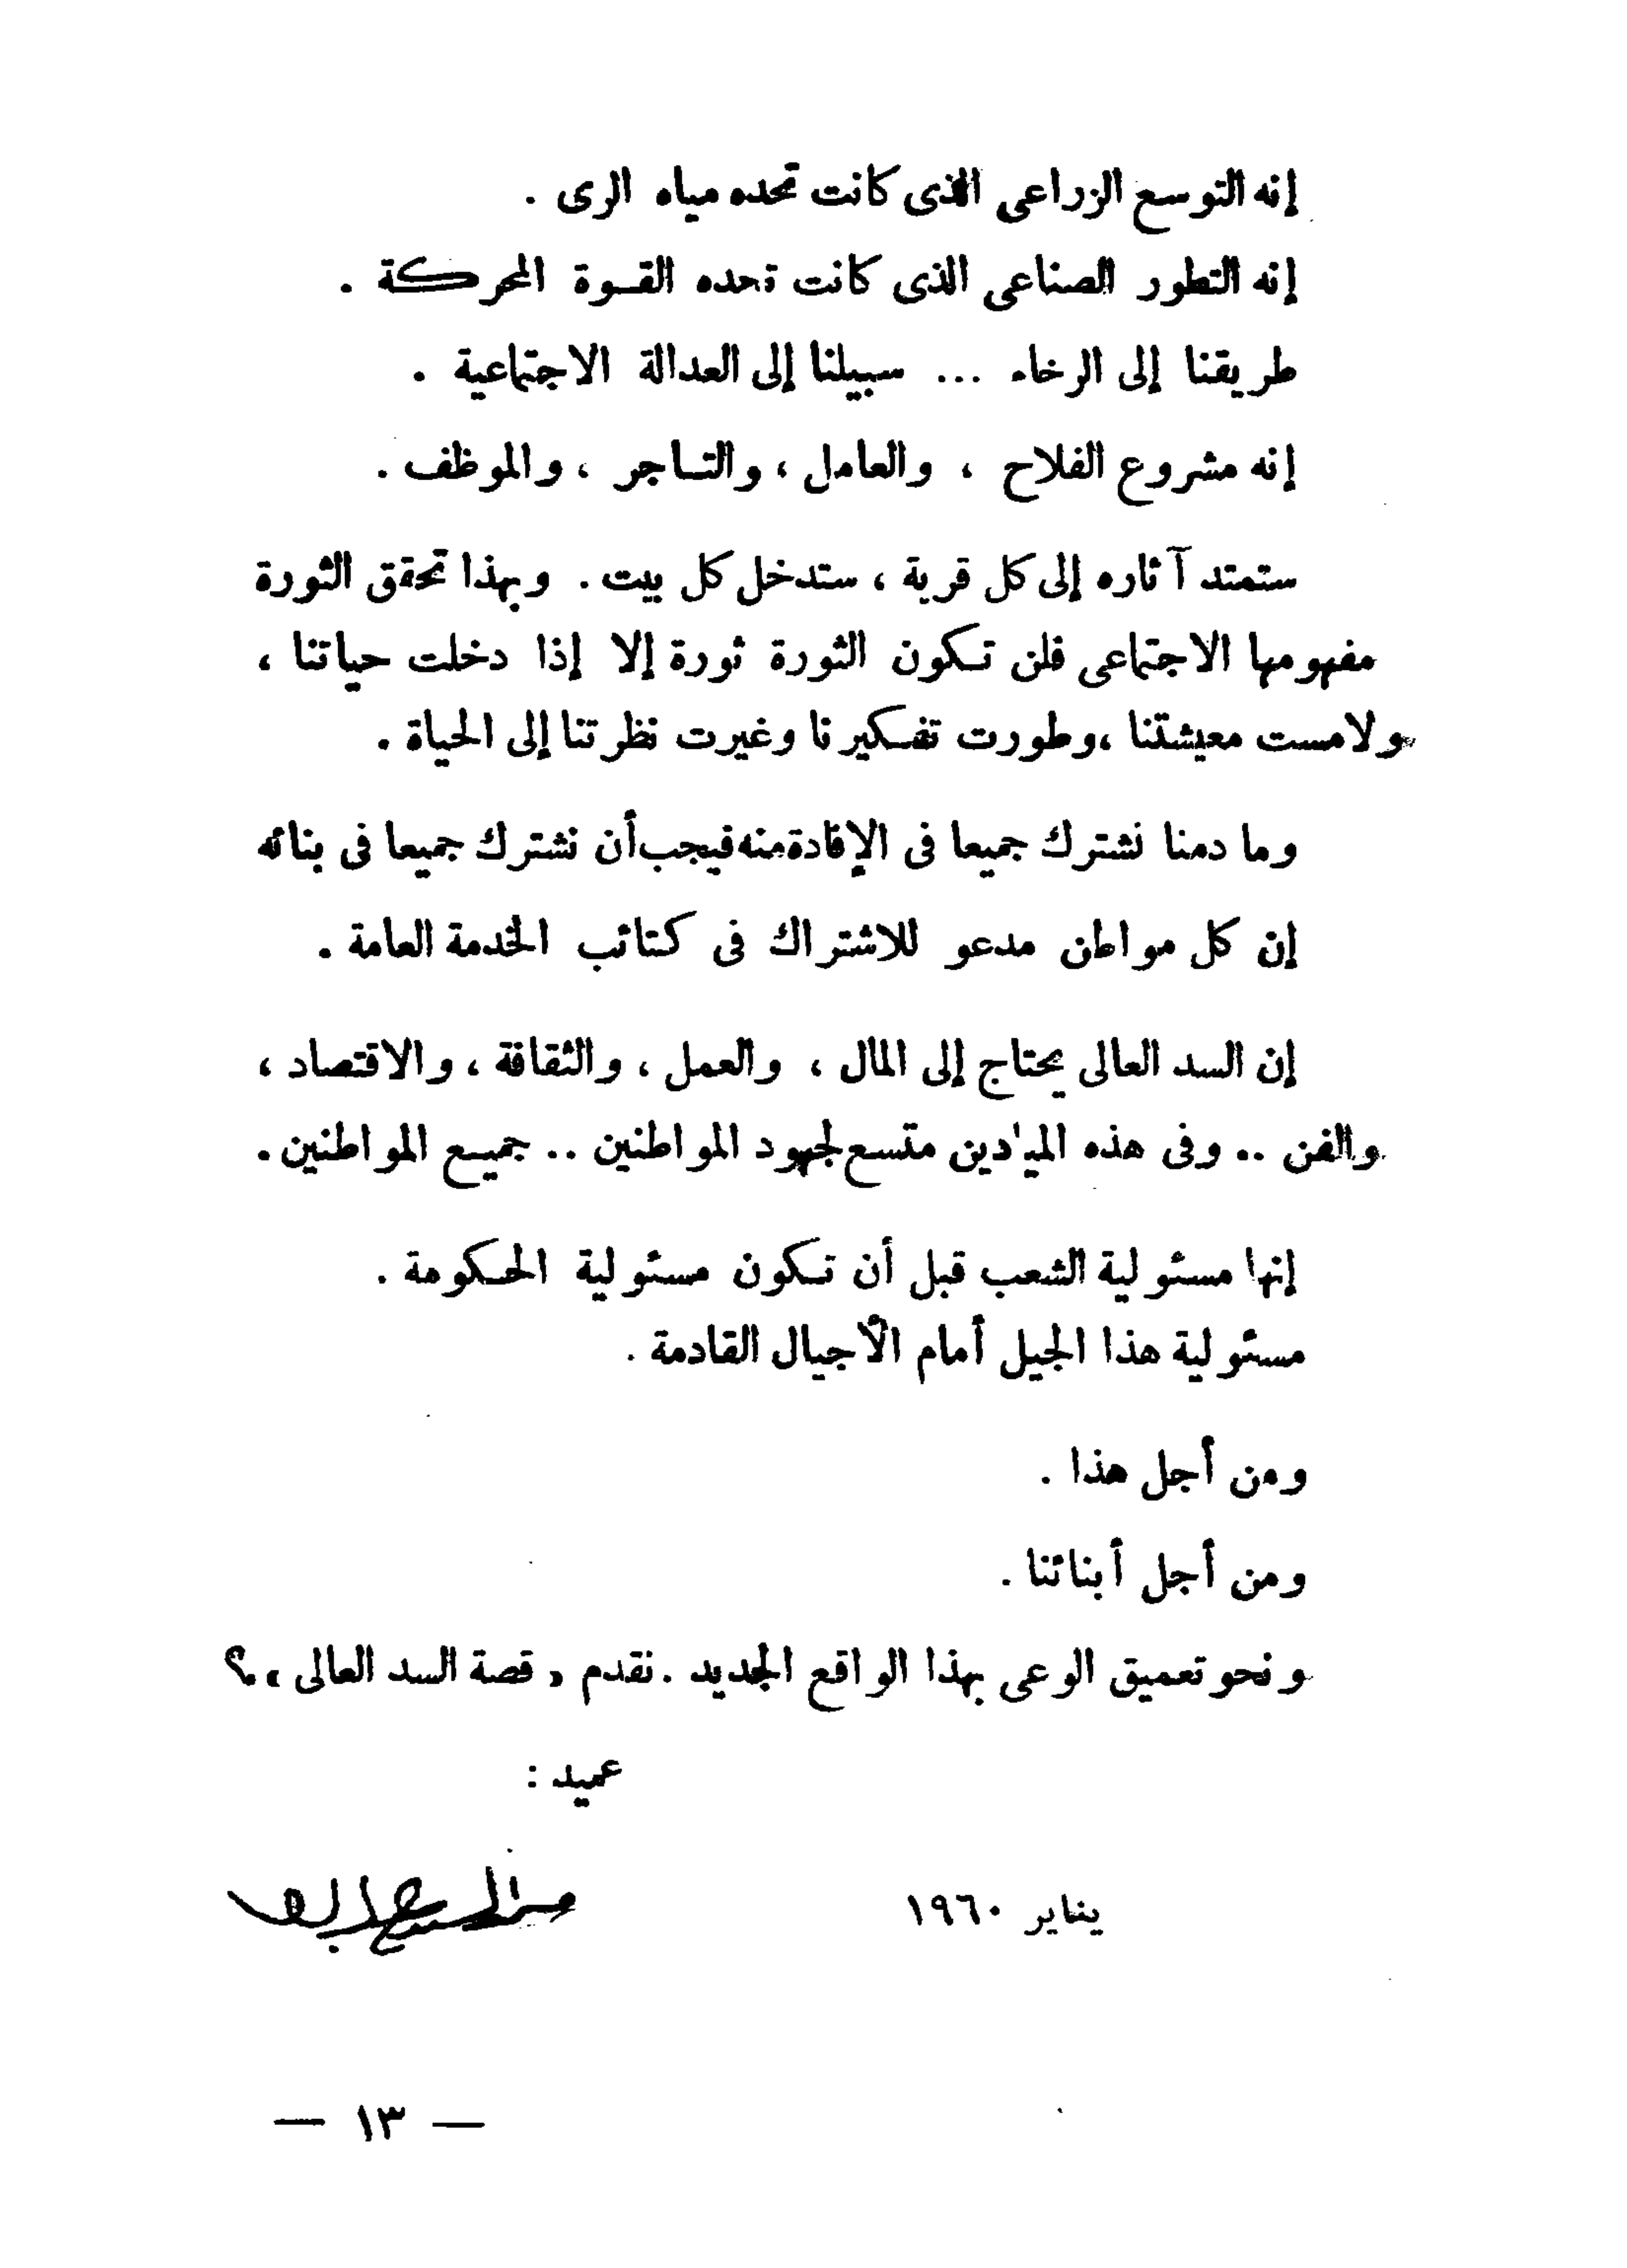 إنه التوسع الزراعى الذى كانت تحده مياه الرى .
إنه التطور الصناعى الذى كانت تحده القوة المحركة .
طريقنا إلى الرخاء ... سبيلنا إلى العدالة الاجتماعية .
إنه مشروع الفلاح ، والعامل ، والتاجر ، والموظف .
ستمتد آثاره إلى كل قرية ، ستدخل كل بيت . وبهذا تحقق الثورة
مفهومها الاجتماعى فلن تكون الثورة ثورة إلا إذا دخلت حياتنا ،
ولامست معيشتنا ، وطورت تفكيرنا وغيرت نظرتنا إلى الحياة .
وما دمنا نشترك جميعا فى الإفادة منه فيجب أن نشترك جميعا فى بنائه
إن كل مواطن مدعو للاشتراك فى كتائب الخدمة العامة .
إن السد العالى يحتاج إلى المال ، والعمل ، والثقافة ، والاقتصاد ،
والفن .. وفى هذه الميادين متسع لجهود المواطنين .. جميع المواطنين .
إنها مسئولية الشعب قبل أن تكون مسئولية الحكومة .
مسئولية هذا الجيل أمام الأجيال القادمة .
ومن أجل هذا .
ومن أجل أبنائنا .
ونحو تعميق الوعى بهذا الواقع الجديد . نقدم « قصة السد العالى » .؟
عميد :
يناير ١٩٦٠
— ١٣ —